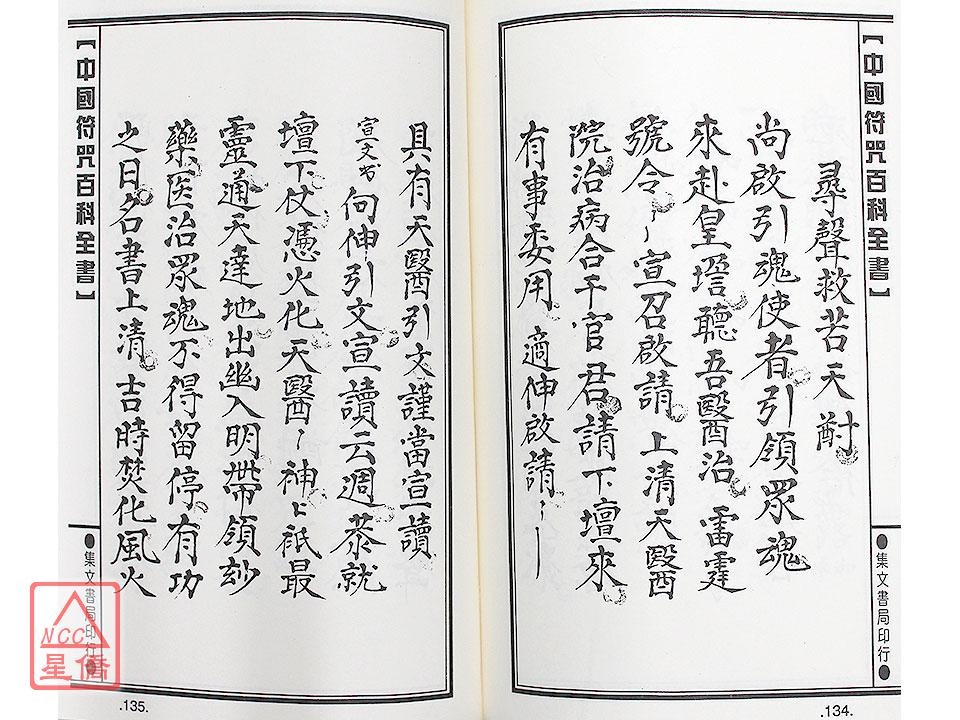 【中國符咒百科全書】
尋聲救苦天尉
尚啟引魂使者引領眾魂
來赴皇壇聽吾醫治雷霆
號令〻宣召啟請上清天醫
院治病合干官君請下壇來
有事委用適伸啟請〻〻
●集文書局印行●
.134.
具有天醫引文謹當宣讀
宣文書向伸引文宣讀云週恭就
壇下仗憑火化天醫〻神〻祇最
靈通天達地出幽入明帶領玅
藥医治眾魂不得留停有功
之日名書上清吉時焚化風火
【中國符咒百科全書】
●集文書局印行●
NCC
星僑
.135.